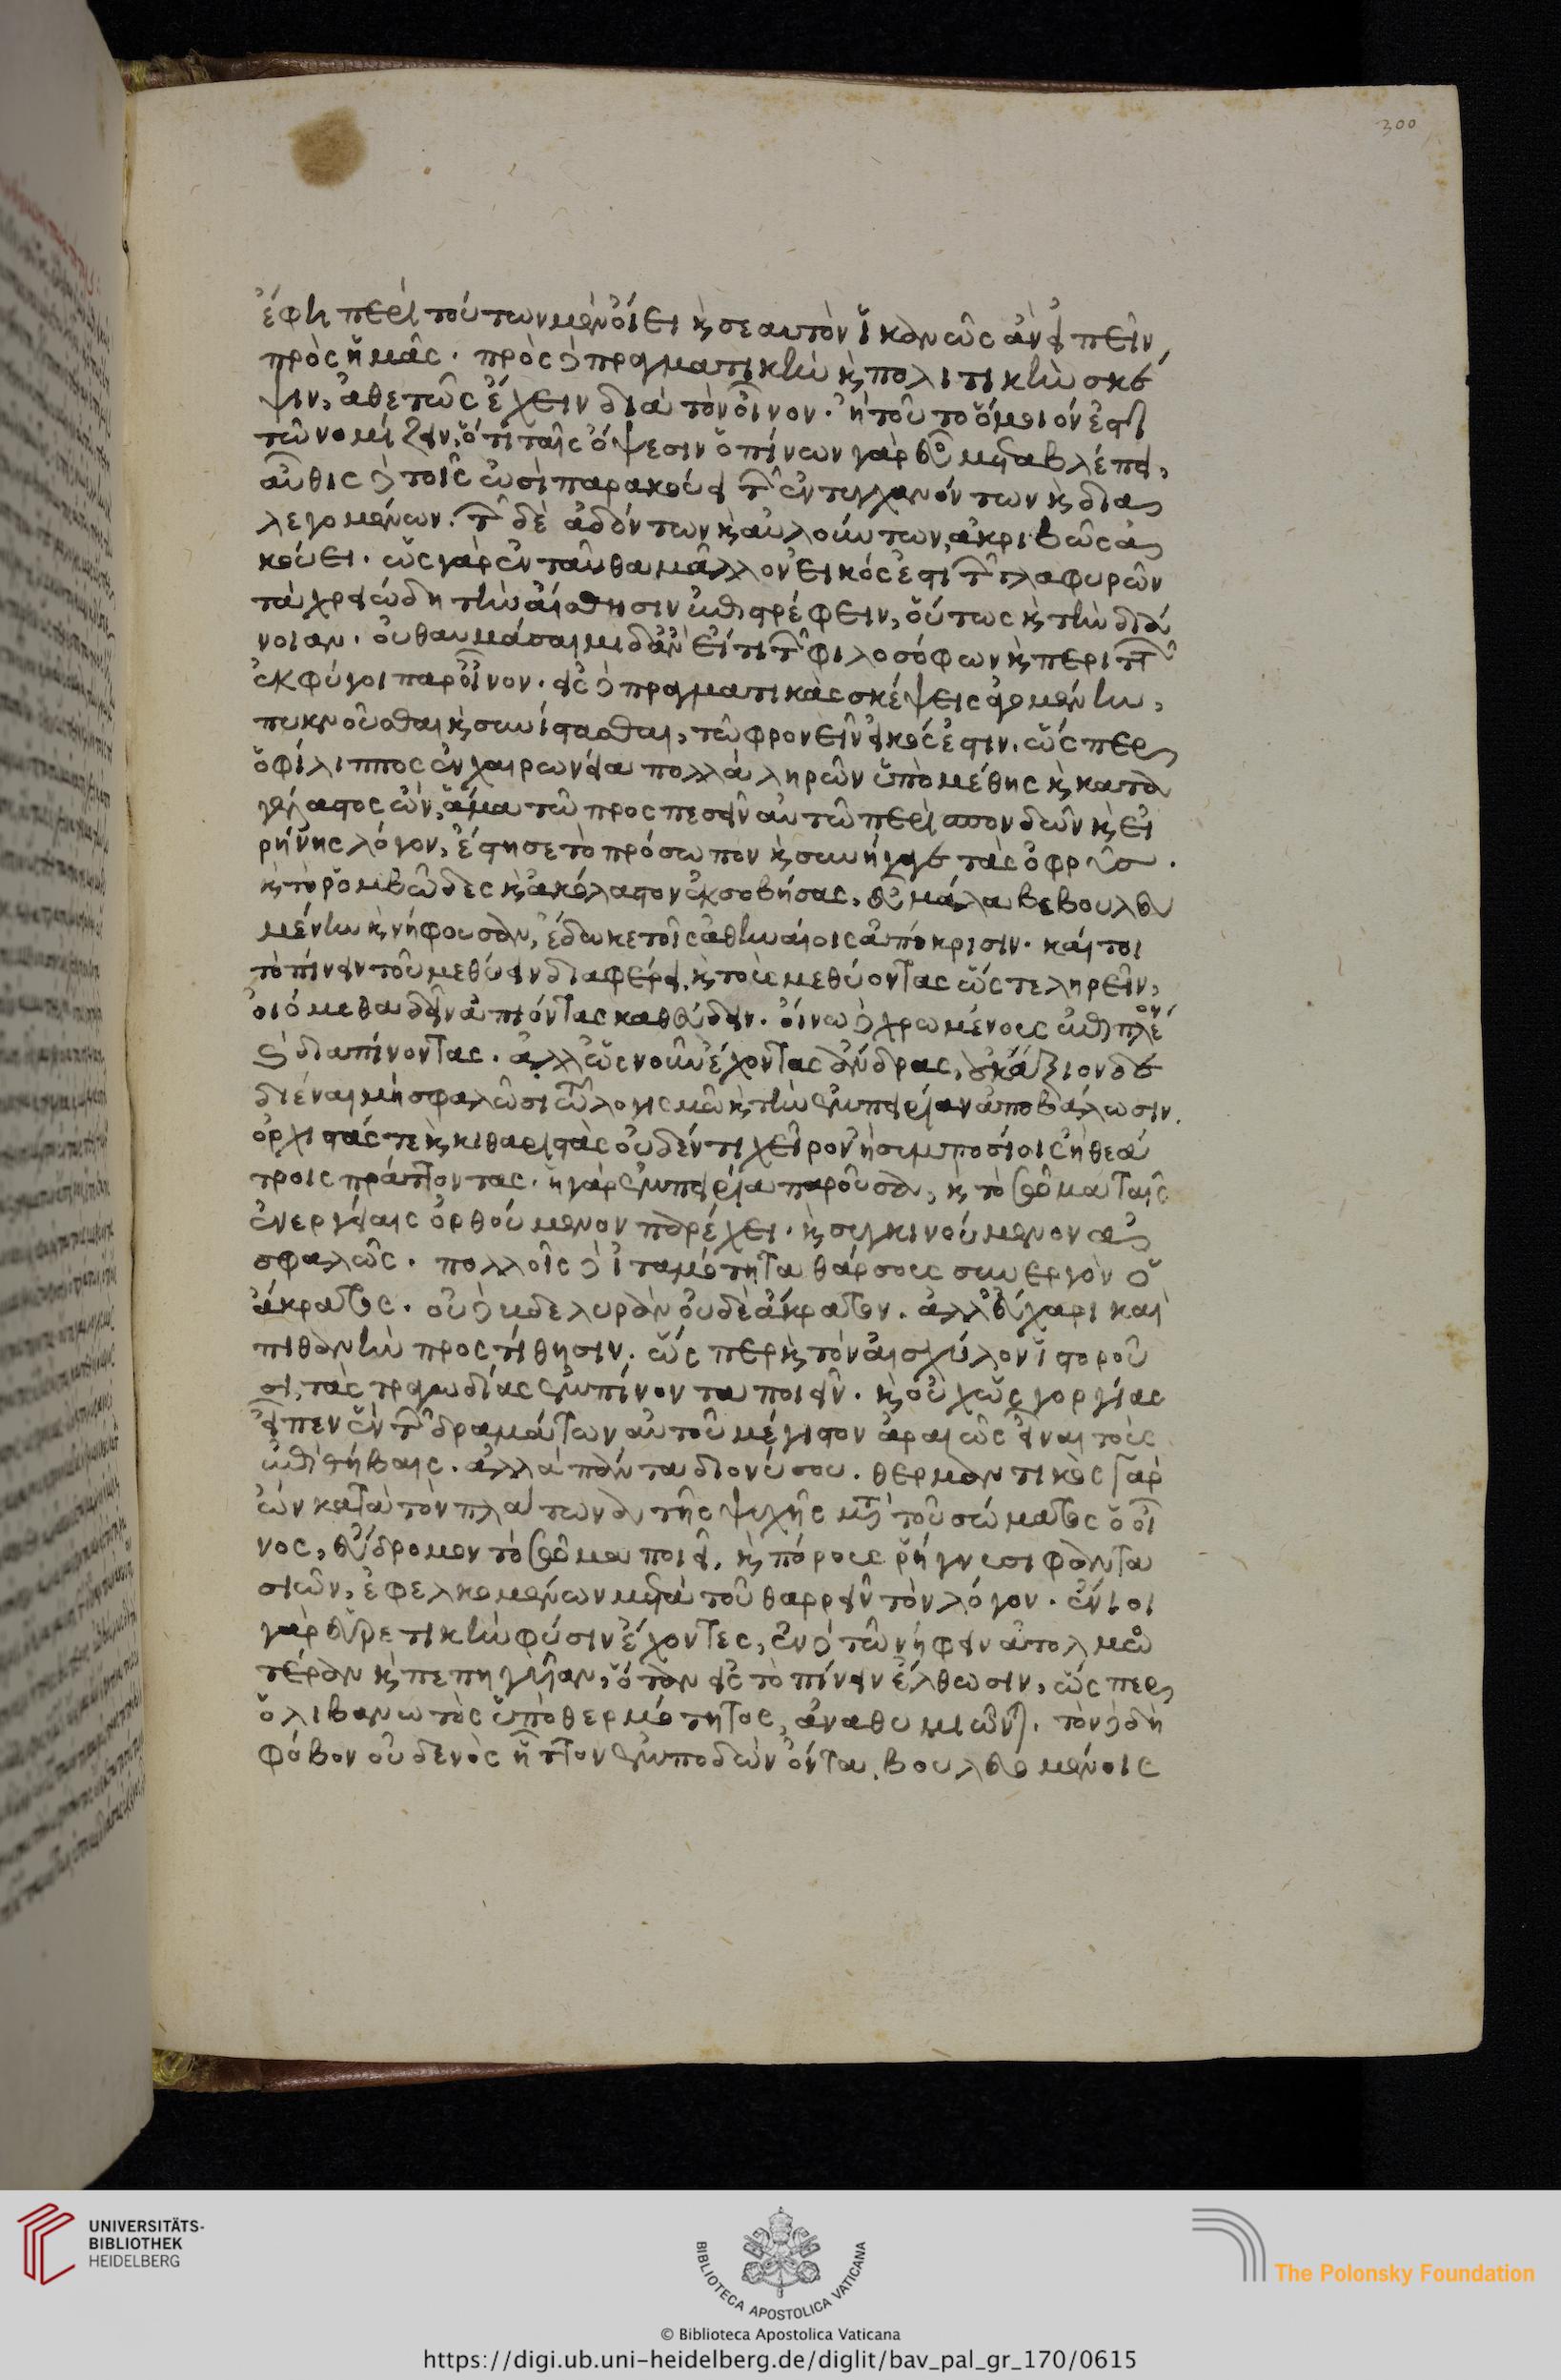 300
ἔφη περὶ τούτων μὲν οἴει καὶ σεαυτὸν ἱκανῶς ἂν εἰπεῖν
πρὸς ἡμᾶς. πρὸς δὲ πραγματικὴν καὶ πολιτικὴν σκέ
ψιν, ἀθετῶς ἔχειν διὰ τὸν οἶνον. ἢ τοῦτο ὅμοιόν ἐστι
τῶ νομίζειν, ὅτι ταῖς ὄψεσιν ὁ πίνων γὰρ εὖ μεγάλα βλέπει,
αὖθις δὲ τοῖς ὠσὶ παρακούει τῶν ἐντυγχανόντων καὶ δια
λεγομένων. τῶν δὲ ἀδόντων καὶ αὐλούντων, ἀκριβῶς ἀ
κούει. ὡς γὰρ ἐνταῦθα μᾶλλον εἰκός ἐστι τῶν γλαφυρῶν
τὰ χρειώδη τὴν αἴσθησιν ἐπιστρέφειν, οὕτως καὶ τὴν διά
νοιαν. οὐ θαυμάσαιμι δ' ἂν εἴ τι τῶν φιλοσόφων καὶ περιττῶν
ἐκφύγοι παρ' οἶνον. εἰς δὲ πραγματικὰς σκέψεις ἀγομένην,
πυκνοῦσθαι καὶ συνίστασθαι, τῶ φρονεῖν εἰκός ἐστιν. ὥσπερ
ὁ φίλιππος ἐν χαιρωνεία πολλὰ ληρῶν ὑπὸ μέθης καὶ κατα
γέλαστος ὤν, ἅμα τῶ προσπεσεῖν αὐτῶ περὶ σπονδῶν καὶ εἰ
ρήνης λόγον, ἔστησε τὸ πρόσωπον καὶ συνήγαγε τὰς ὀφρῦς.
καὶ τὸ ῥομβῶδες καὶ ἀκόλαστον ἐκσοβήσας, εὖ μάλα βεβουλευ
μένην καὶ νήφουσαν, ἔδωκε τοῖς ἀθηναίοις ἀπόκρισιν. καίτοι
τὸ πίνειν τοῦ μεθύειν διαφέρει, καὶ τοὺς μεθύοντας ὥστε ληρεῖν,
οἰόμεθα δεῖν ἀπιόντας καθεύδειν. οἴνω δὲ χρωμένους ἐπὶ πλέον
καὶ διαπίνοντας. ἄλλως νοῦν ἔχοντας ἄνδρας, οὐκ ἄξιον δε
διέναι μὴ σφαλῶσι τῶ λογισμῶ καὶ τὴν ἐμπειρίαν ἀποβάλωσιν.
ὀρχηστάς τε καὶ κιθαριστὰς οὐδέν τι χεῖρον ἢ συμποσίοις ἢ θεά
τροις πράττοντας. ἡ γὰρ ἐμπειρία παροῦσα, καὶ τὸ σῶμα ταῖς
ἐνεργείαις ὀρθούμενον παρέχει. καὶ συγκινούμενον ἀ
σφαλῶς. πολλοῖς δὲ ἰταμότητα θάρσους συνεργὸν ὁ
ἄκρατος. οὐ δὲ βδελυρὰν οὐδὲ ἄκρατον. ἀλλ' εὔχαρι καὶ
πιθανὴν προστίθησιν. ὥσπερ καὶ τὸν αἰσχύλον ἱστοροῦ
σι, τὰς τραγωδίας ἐμπίνοντα ποιεῖν. καὶ οὐχ ὡς γοργίας
εἶπεν ἓν τῶν δραμάτων αὐτοῦ μέγιστον ἄραι ὡς εἶναι τοὺς
ἐπὶ θήβαις. ἀλλὰ πάντα διονύσου. θερμαντικὸς γὰρ
ὢν κατὰ τὸν πλάτωνα τῆς ψυχῆς μετὰ τοῦ σώματος ὁ οἶ
νος, εὔδρομον τὸ σῶμα ποιεῖ. καὶ πόρους ῥήγνυσι φαντα
σιῶν, ἐφελκομένων μετὰ τοῦ θαρρεῖν τὸν λόγον. ἔνιοι
γὰρ εὑρετικὴν φύσιν ἔχοντες, ἐν δὲ τῶ νήφειν ἀτολμο
τέραν καὶ πεπηγυῖαν, ὅταν εἰς τὸ πίνειν ἔλθωσιν, ὥσπερ
ὁ λιβανωτὸς ὑπὸ θερμότητος, ἀναθυμιῶνται. τὸν δὲ δὴ
φόβον οὐδενὸς ἧττον ἐμποδὼν ὄντα, βουλευομένοις
UNIVERSITÄTS-
BIBLIOTHEK
HEIDELBERG
BIBLIOTECA APOSTOLICA VATICANA
The Polonsky Foundation
© Biblioteca Apostolica Vaticana
https://digi.ub.uni-heidelberg.de/diglit/bav_pal_gr_170/0615